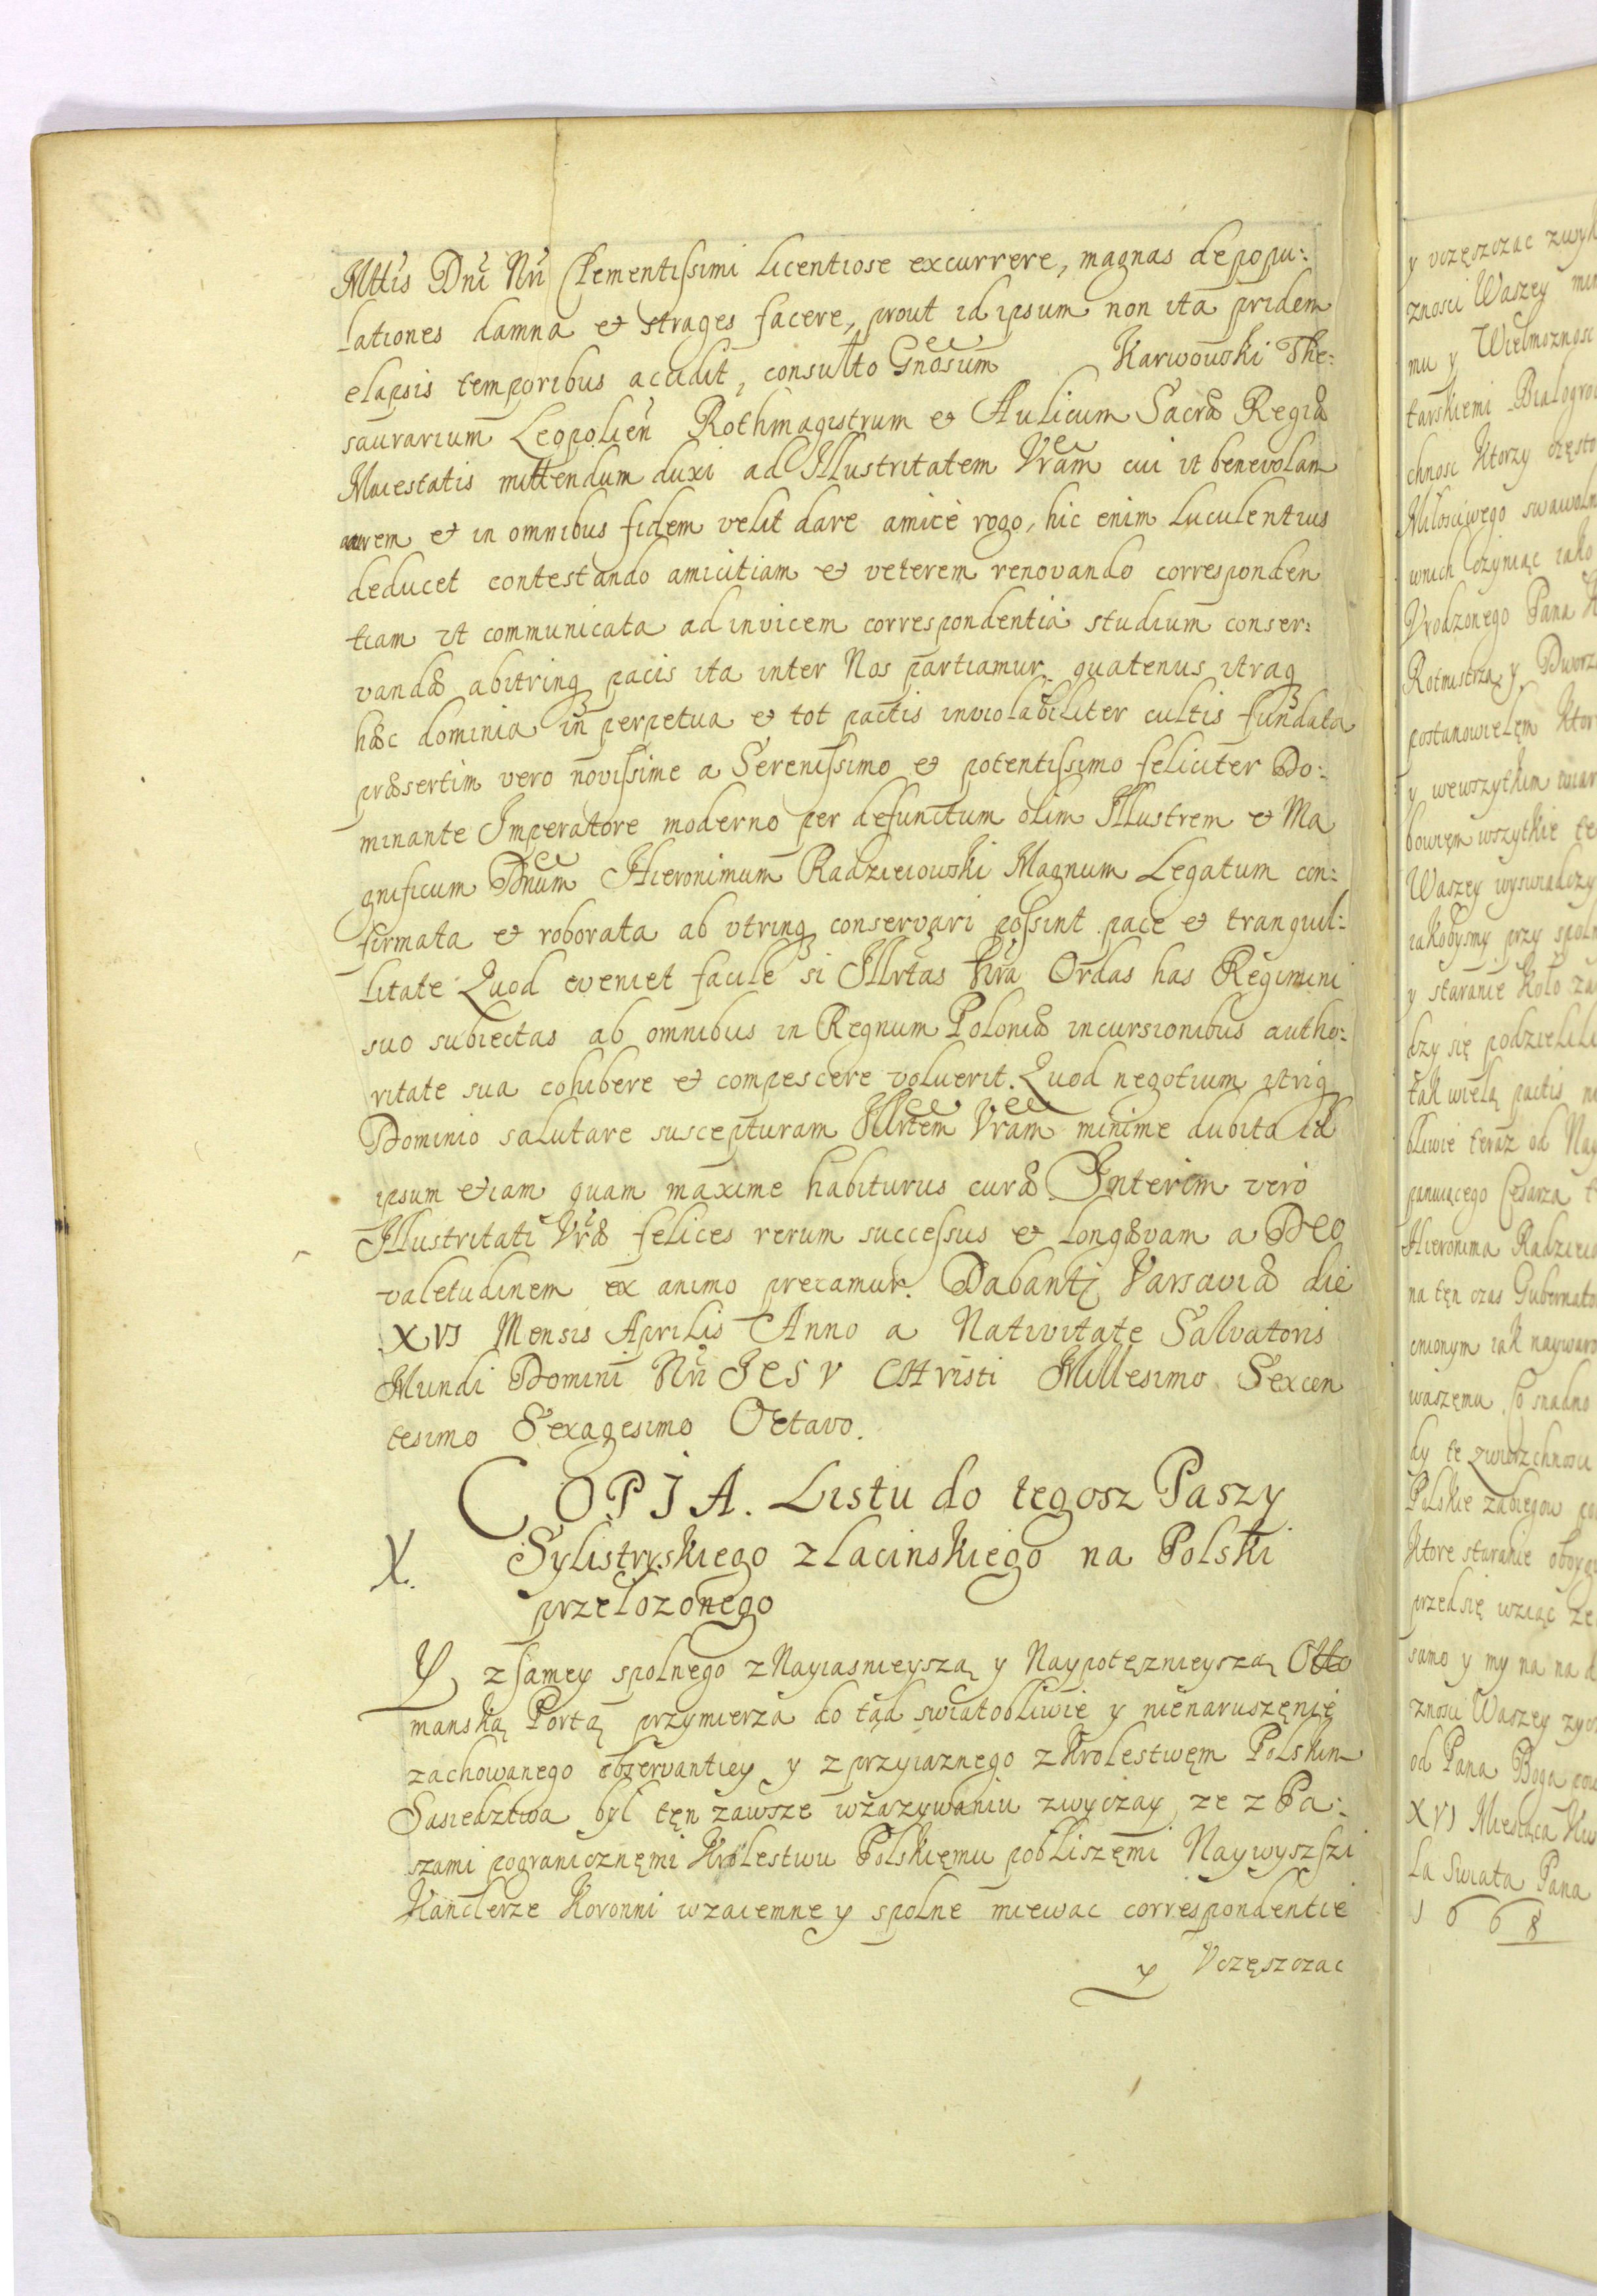 Mttis Dni Nri Clementissimi licentiose excurrere, magnas depopu:
lationes damna et strages facere, prout id ipsum non ita pridem
elapsis temporibus accidit, consulto Gnosum Karwowski The:
saurarium Leopolien Rothmagistrum et Aulicum Sacræ Regiæ
Maiestatis mittendum duxi ad Illustritatem Vram cui ut benevolam
aurem et in omnibus fidem velit dare amicè rogo, hic enim luculentius
deducet contestando amicitiam et veterem renovando corresponden
tiam ut communicata ad invicem correspondentia studium conser:
vandæ abutrinq pacis ita inter Nos partiamur quatenus utraq
hæc dominia in perpetua et tot pactis inviolabiliter cultis fundata
præsertim vero novissime a Serenissimo et potentissimo feliciter Do:
minante Imperatore moderno per defunctum olim Illustrem et Ma
gnificum Dnum Hieronimum Radzieiowski Magnum Legatum con:
firmata et roborata ab utrinq conservari possint pace et tranquil:
litate Quod eveniet facile si Illrtas Vra Ordas has Regimini
suo subiectas ab omnibus in Regnum Poloniæ incursionibus autho:
ritate sua cohibere et compescere voluerit. Quod negotium utriq
Dominio salutare suscepturam Illrtem Vram minime dubito id
ipsum etiam quam maxime habiturus curæ Interim verò
Illustritati Vræ felices rerum successus et longævam a DEO
valetudinem ex animo precamur. Dabantz Varsaviæ die
XVI Mensis Aprilis Anno a Nativitate Salvatoris
Mundi Domini Nri JESV CHristi Millesimo Sexcen
tesimo Sexagesimo Octavo.
COPIA. Listu do tegosz Paszy
X. Sylistryskiego z lacinskiego na Polski
przelozonego
Y z samey spolnego z Nayiasnieyszą y Naypotęznieyszą Otto
manską Portą przymierza do tąd swiatobliwie y nienaruszęnie
zachowanego observantiey y z przyiaznego z Krolestwęm Polskim
Sasiedztwa był tęn zawsze wzazywaniu zwyczay, ze z Pa:
szami pogranicznęmi Krolestwu Polskięmu pobliszęmi Naywyszszi
Kanclerze Koronni wzaiemne y spolne miewac correspondentie
y Vczęszczac
y vczęszczac
znosci Waszey
mu y Wielmoznosc
tarskiemi
chnosc Ktorzy często
Milosciwego
wnich czyniąc iako
Vrodzonego Pana
Rotmistrza y
postanowiełęm
y wewszytkim
bowięm wszytkie
Waszey
iakobysmy przy
y staranie Koło
dzy się podzielili
tak wielą pactis
bliwie teraz od
panuiącego Cesarza
Hieronima
na tęn czas
iak
waszęmu
dy te
Polskie zabiegow
Ktore staranie
przed się wziąc
samo y my na
znosci Waszey
od Pana Boga
XVI Miesiąca
la Swiata Pana
1668